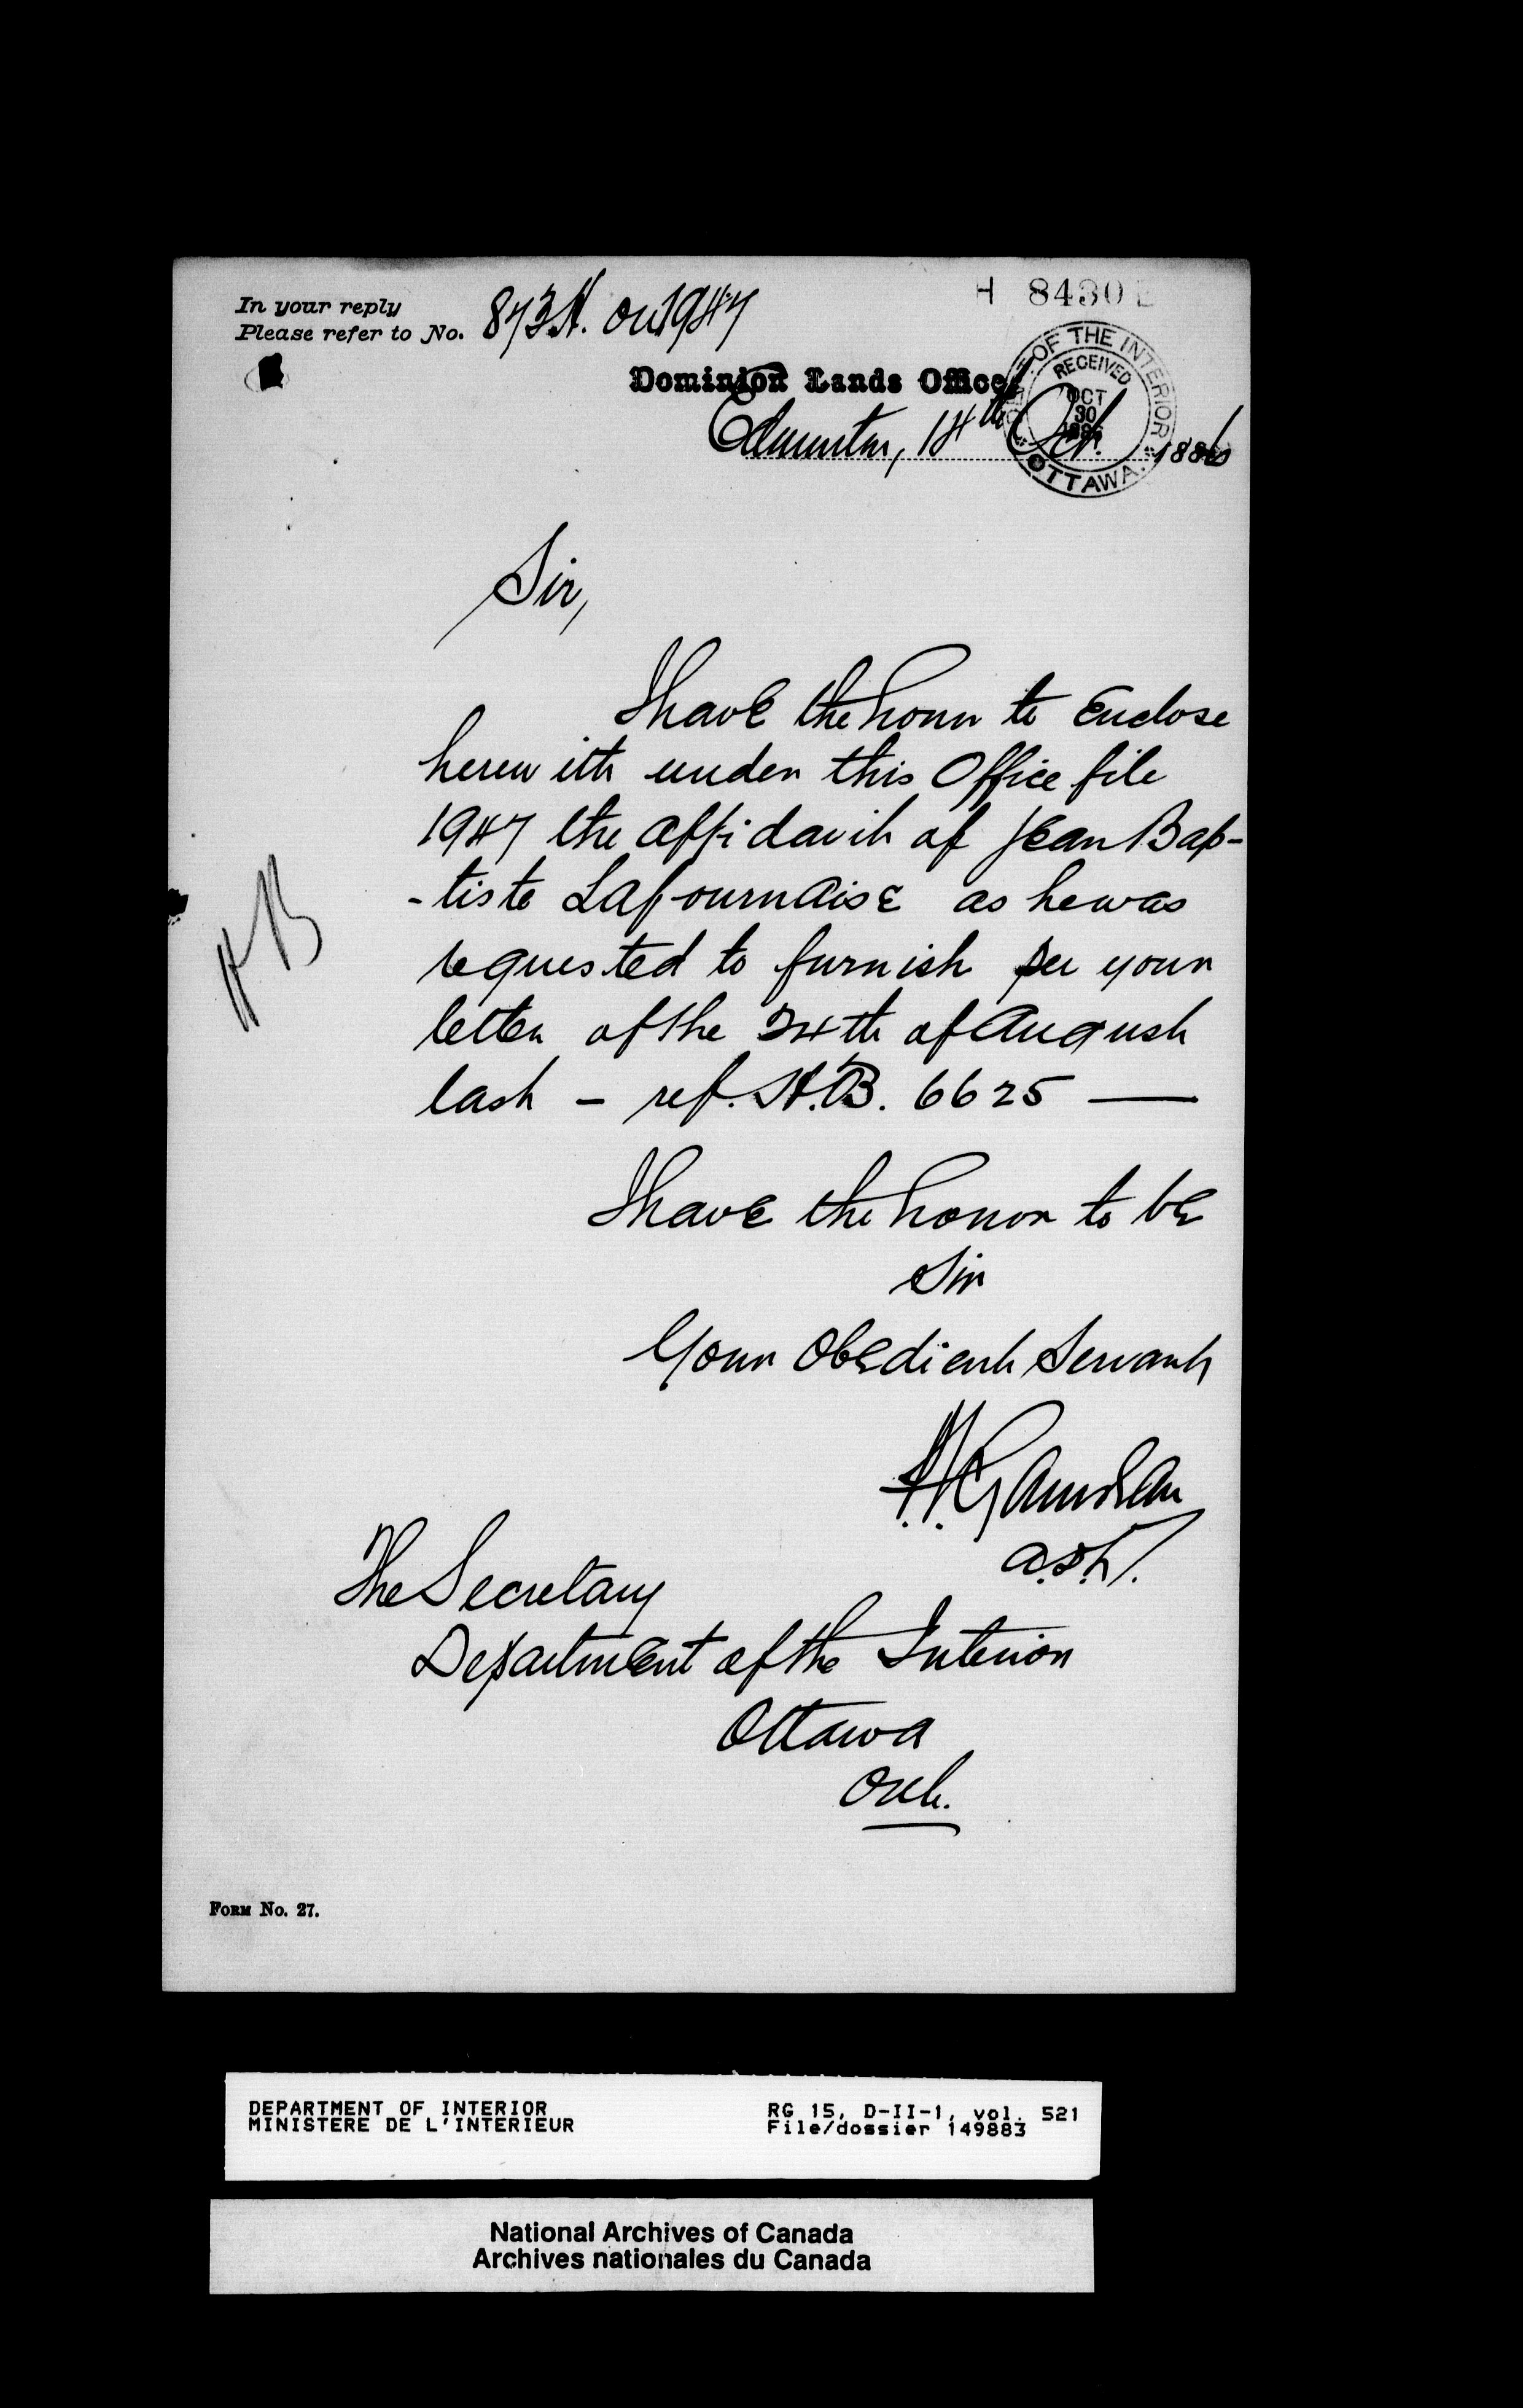 In your reply
Please refer to No. 873H. on 1947
H 8430 B
Dominion Lands Office,
Edmonton, 14th Oct. 1886
OF THE INTERIOR
RECEIVED
OCT
30
1886
OTTAWA.
Sir,
I have the honor to Enclose
herewith under this Office file
1947 the affidavit of Jean Bap-
-tiste Lafournaise as he was
requested to furnish per your
letter of the 24th of August
last - ref. H.B. 6625 —
HB
I have the honor to be
Sir
Your Obedient Servant
Gauvreau
The Secretary
Department of the Interior
Ottawa
Ont.
FORM No. 27.
DEPARTMENT OF INTERIOR
MINISTERE DE L'INTERIEUR
RG 15, D-II-1, vol. 521
File/dossier 149883
National Archives of Canada
Archives nationales du Canada